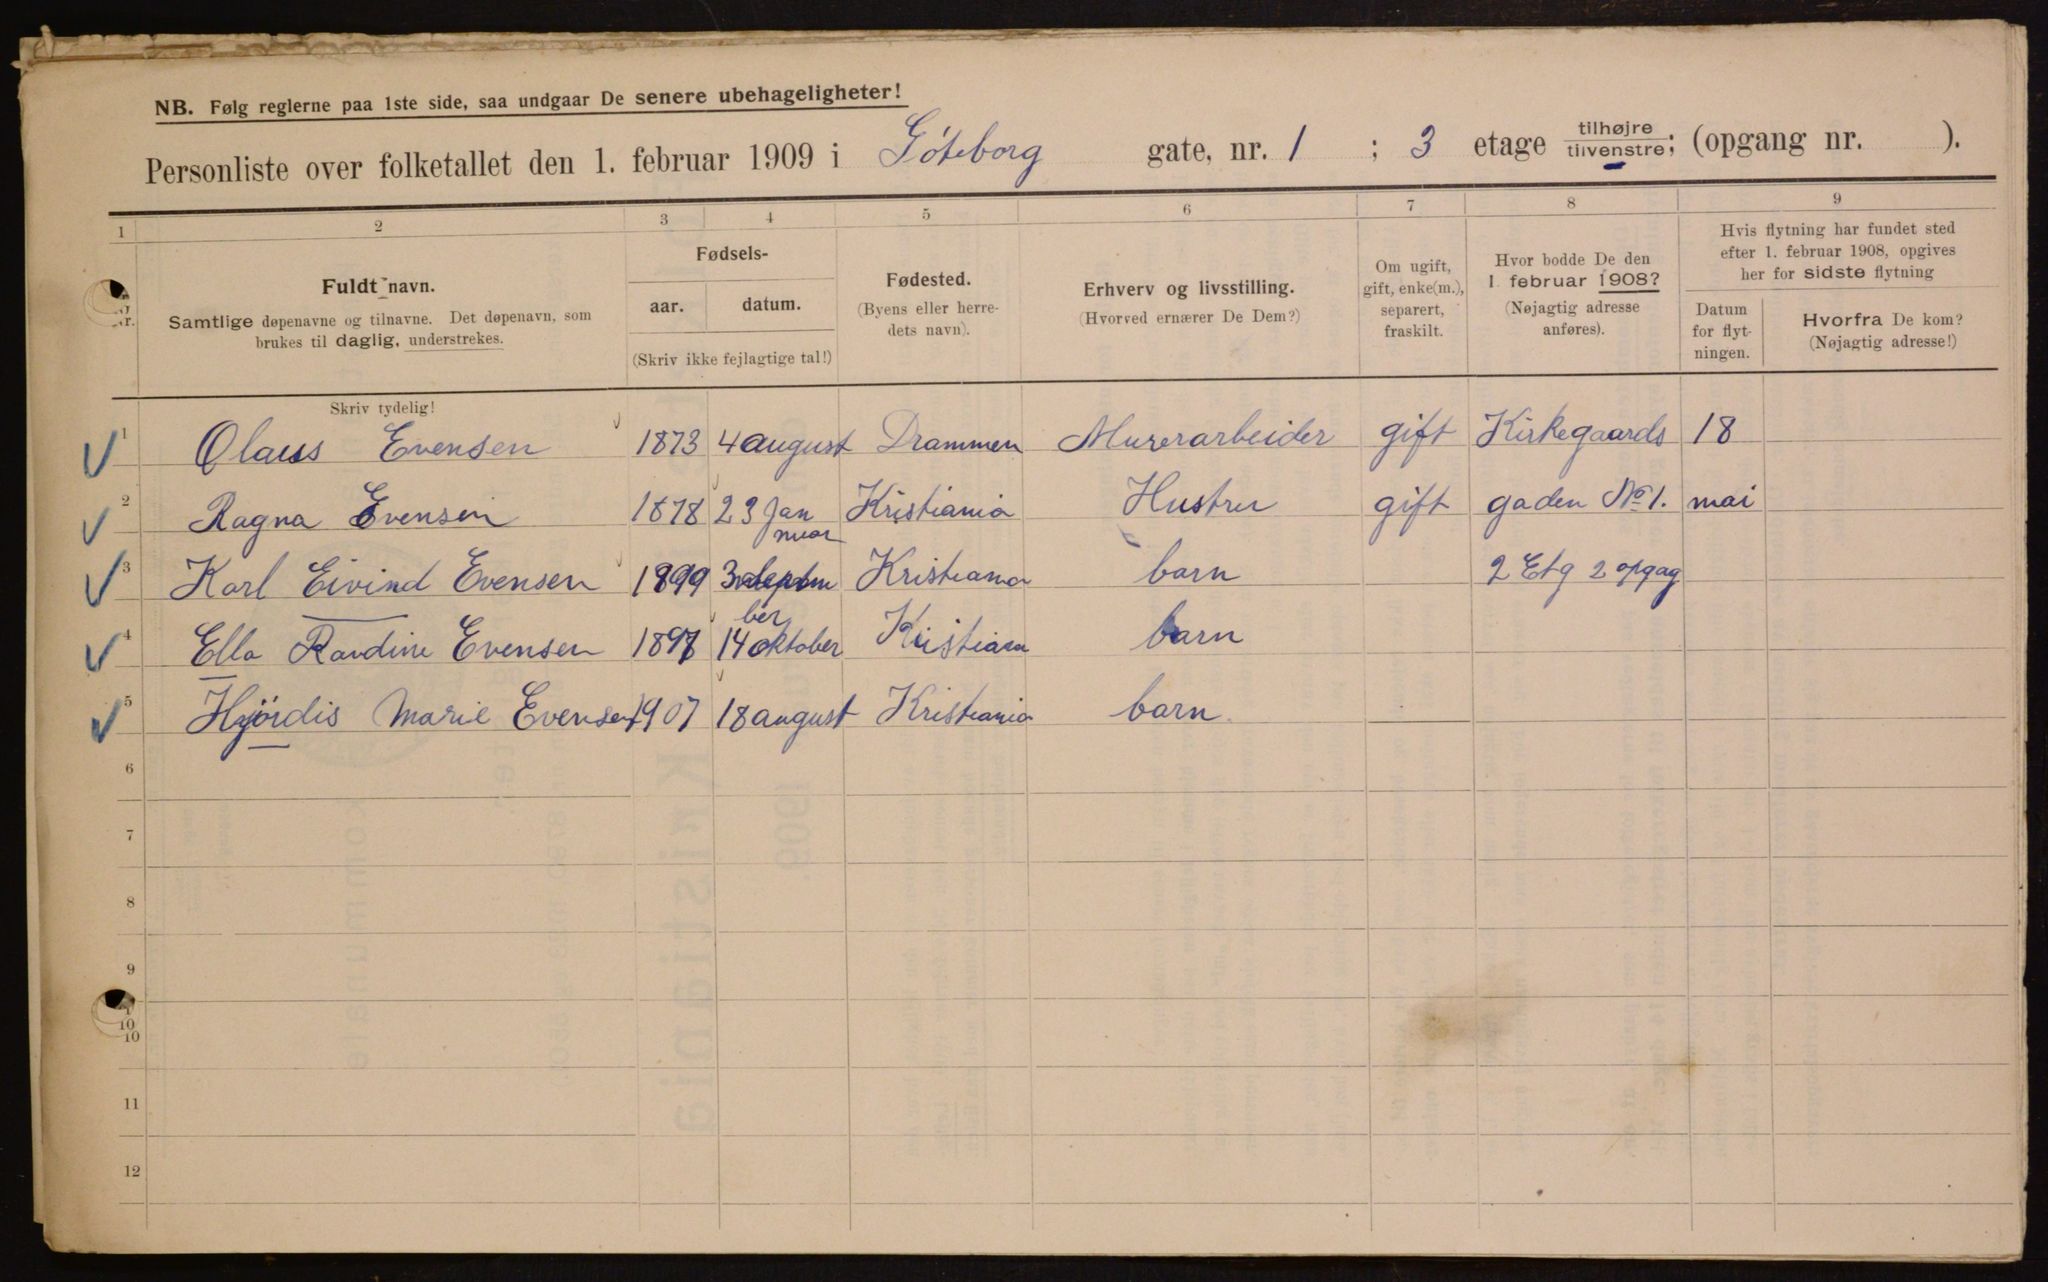 NB. Følg reglerne paa 1ste side, saa undgaar De senere ubehageligheter!
Personliste over folketallet den 1. februar 1909 i Göteborg gate, nr. 1 ; 3 etage tilhøjre tilvenstre; (opgang nr. ).
1 2 3 4 5 6 7 8 9
Fuldt navn.
Samtlige døpenavne og tilnavne. Det døpenavn, som
brukes til daglig, understrekes.
Skriv tydelig!
Fødsels-
aar. datum.
(Skriv ikke fejlagtige tal!)
Fødested.
(Byens eller herre-
dets navn).
Erhverv og livsstilling.
(Hvorved ernærer De Dem?)
Om ugift,
gift, enke(m.),
separert,
fraskilt.
Hvor bodde De den
1. februar 1908?
(Nøjagtig adresse
anføres).
Hvis flytning har fundet sted
efter 1. februar 1908, opgives
her for sidste flytning
Datum
for flyt-
ningen.
Hvorfra De kom?
(Nøjagtig adresse!)
1 Olaus Evensen 1873 4 august Drammen Murerarbeider gift Kirkegaards 18
2 Ragna Evensen 1878 23 Jan Kristiania Hustru gift gaden No 1. mai
nuar
3 Karl Eivind Evensen 1899 3 septem Kristiania barn 2 Etg 2 opgag
ber
4 Ella Randine Evensen 1897 14 oktober Kristiana barn
5 Hjördis Marie Evensen 1907 18 august Kristiania barn.
6
7
8
9
10
10
11
12